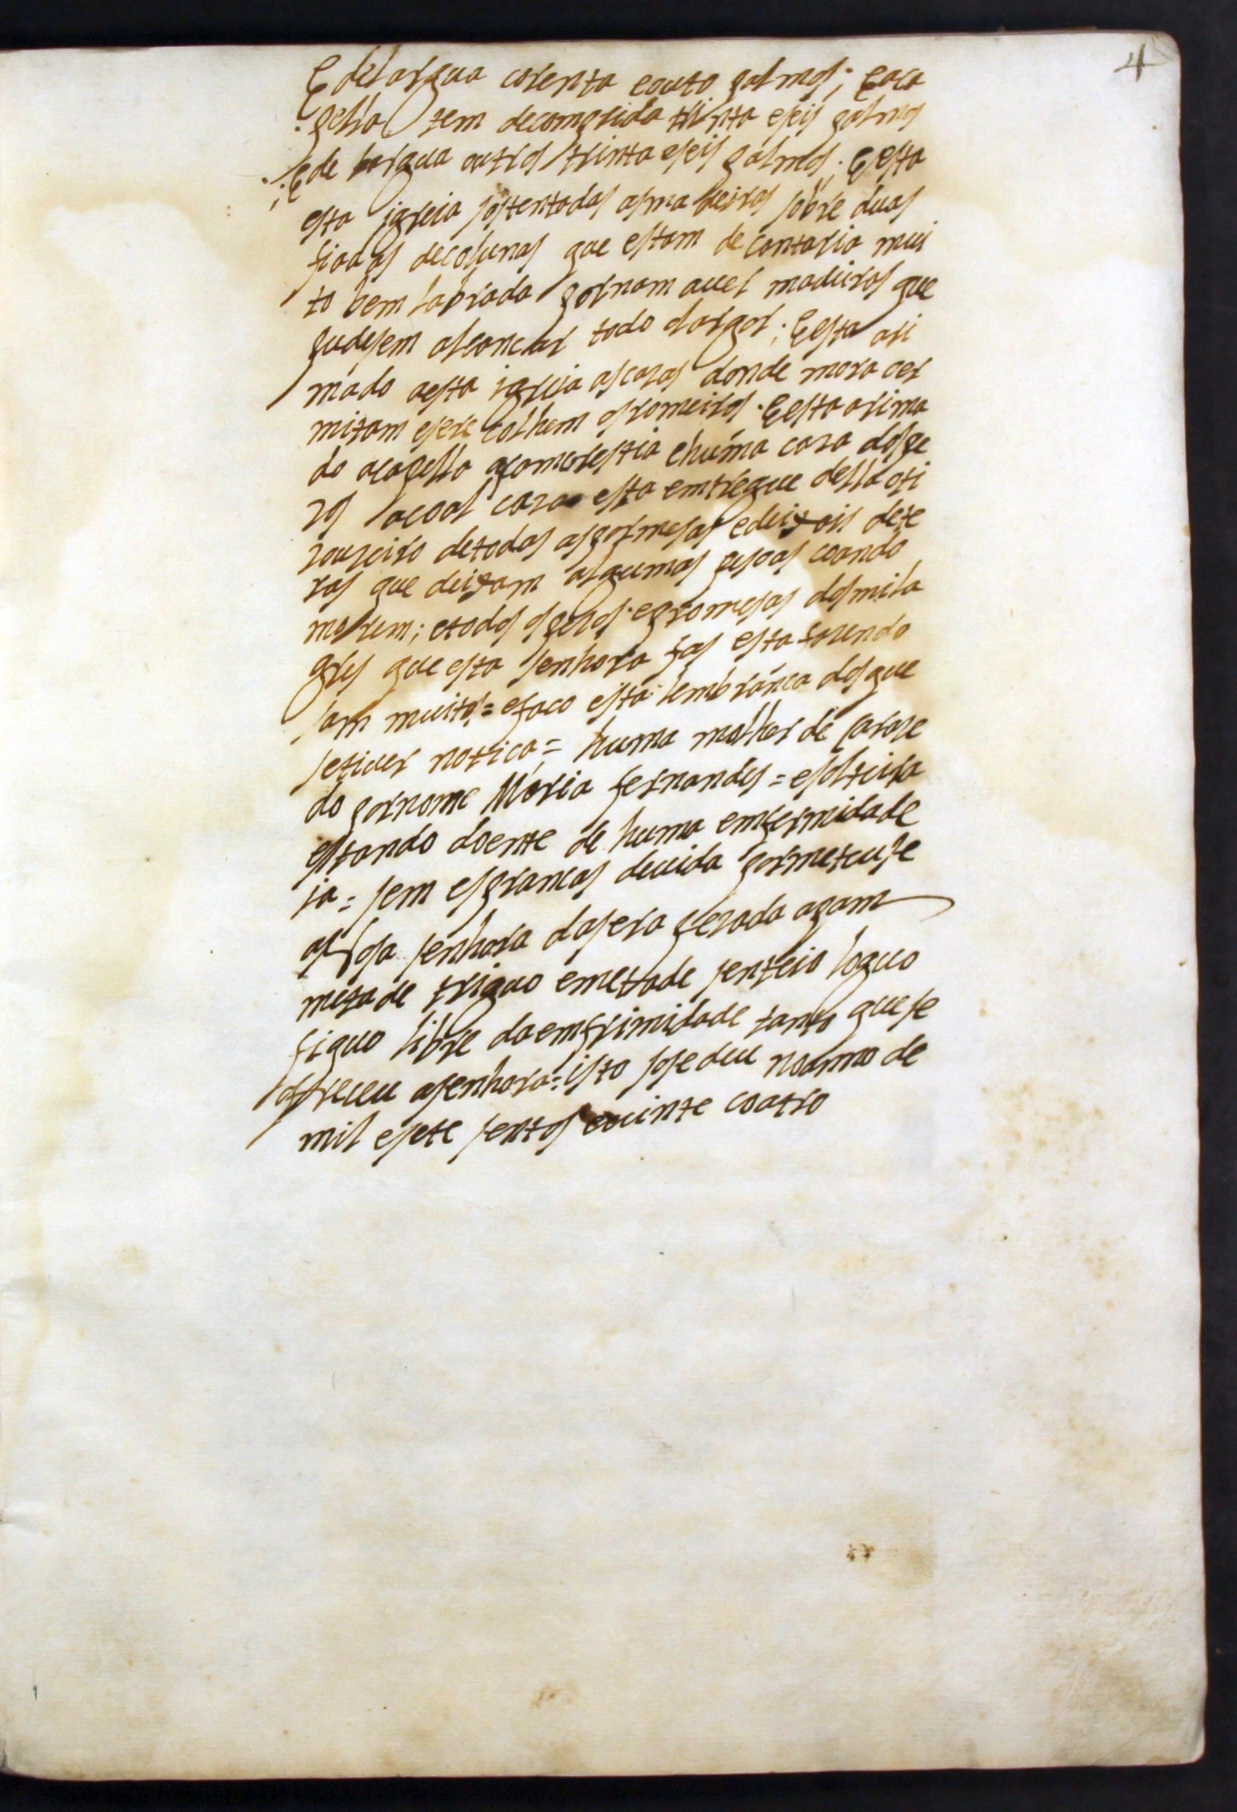 4
E de largua corenta e outo palmos; E aca
pella tem decomprida trinta eseis palmos
E de largua outros trinta eseis palmos; E esta
esta igreia sostentadas asmadeiros sobre duas
fiadas decolunas que estam de contaria mui
to bem labrada por nam auer madeiros que
pudesem alcancar todo olargor; E esta ari
mado aesta igreia ascazas donde mora oer
mitam esere colhem osromeiros. E esta arima
do acapella acomfrestia e huma caza dospe
zos acoal caza esta emtregue della oti
zoureiro detodas aspormesas edeixois dete
ras que deixam algumas pesoas coando
morem; etodos ospezos. epromesas dosmila
gres que esta senhora fas esta fazendo
sam muitos = efaco esta lembranca dosque
setiuer noticia = huma molher de Caraze
do pornome Maria fernandes = esolteira
estando doente de huma emfermidade
ia = sem esprancas deuida pormeteuse
a senhora daserra pezada apam
metade triguo emetade senteio loguo
fiquo libre da emfrimidade tanto que se
ofreceu asenhora = isto sosedeu noanno de
mil esete sentos euinte coatro